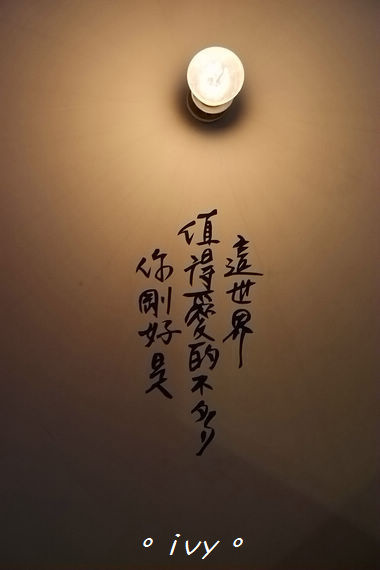 這世界
值得愛的不多
你剛好是
° ivy °